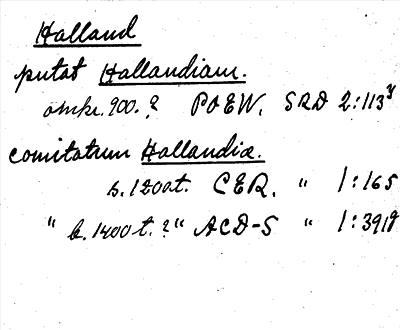 Halland
putat Hallandiam.
omkr. 900.? POEW. SRD 2:113
comitatum Hallandiæ.
s. 1200t. CER. " 1:165
" b. 1400 t. ? " ACD-S " 1:391